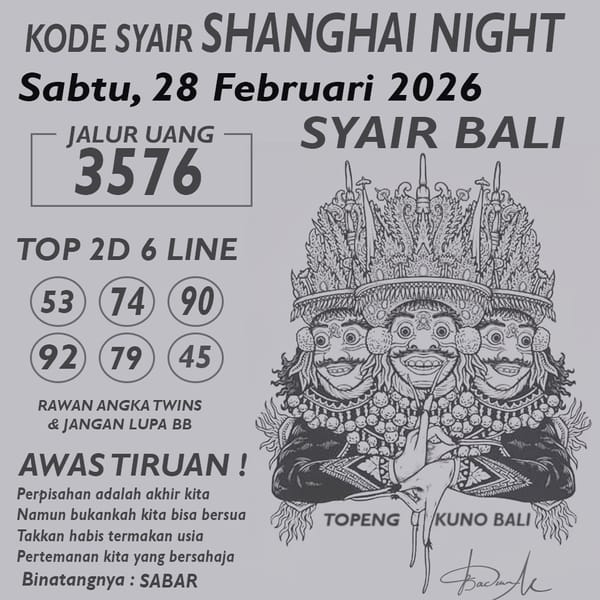 KODE SYAIR SHANGHAI NIGHT
Sabtu, 28 Februari 2026
SYAIR BALI
JALUR UANG
3576
TOP 2D 6 LINE
53 74 90
92 79 45
RAWAN ANGKA TWINS
& JANGAN LUPA BB
AWAS TIRUAN !
Perpisahan adalah akhir kita
Namun bukankah kita bisa bersua
Takkan habis termakan usia
Pertemanan kita yang bersahaja
Binatangnya : SABAR
TOPENG KUNO BALI